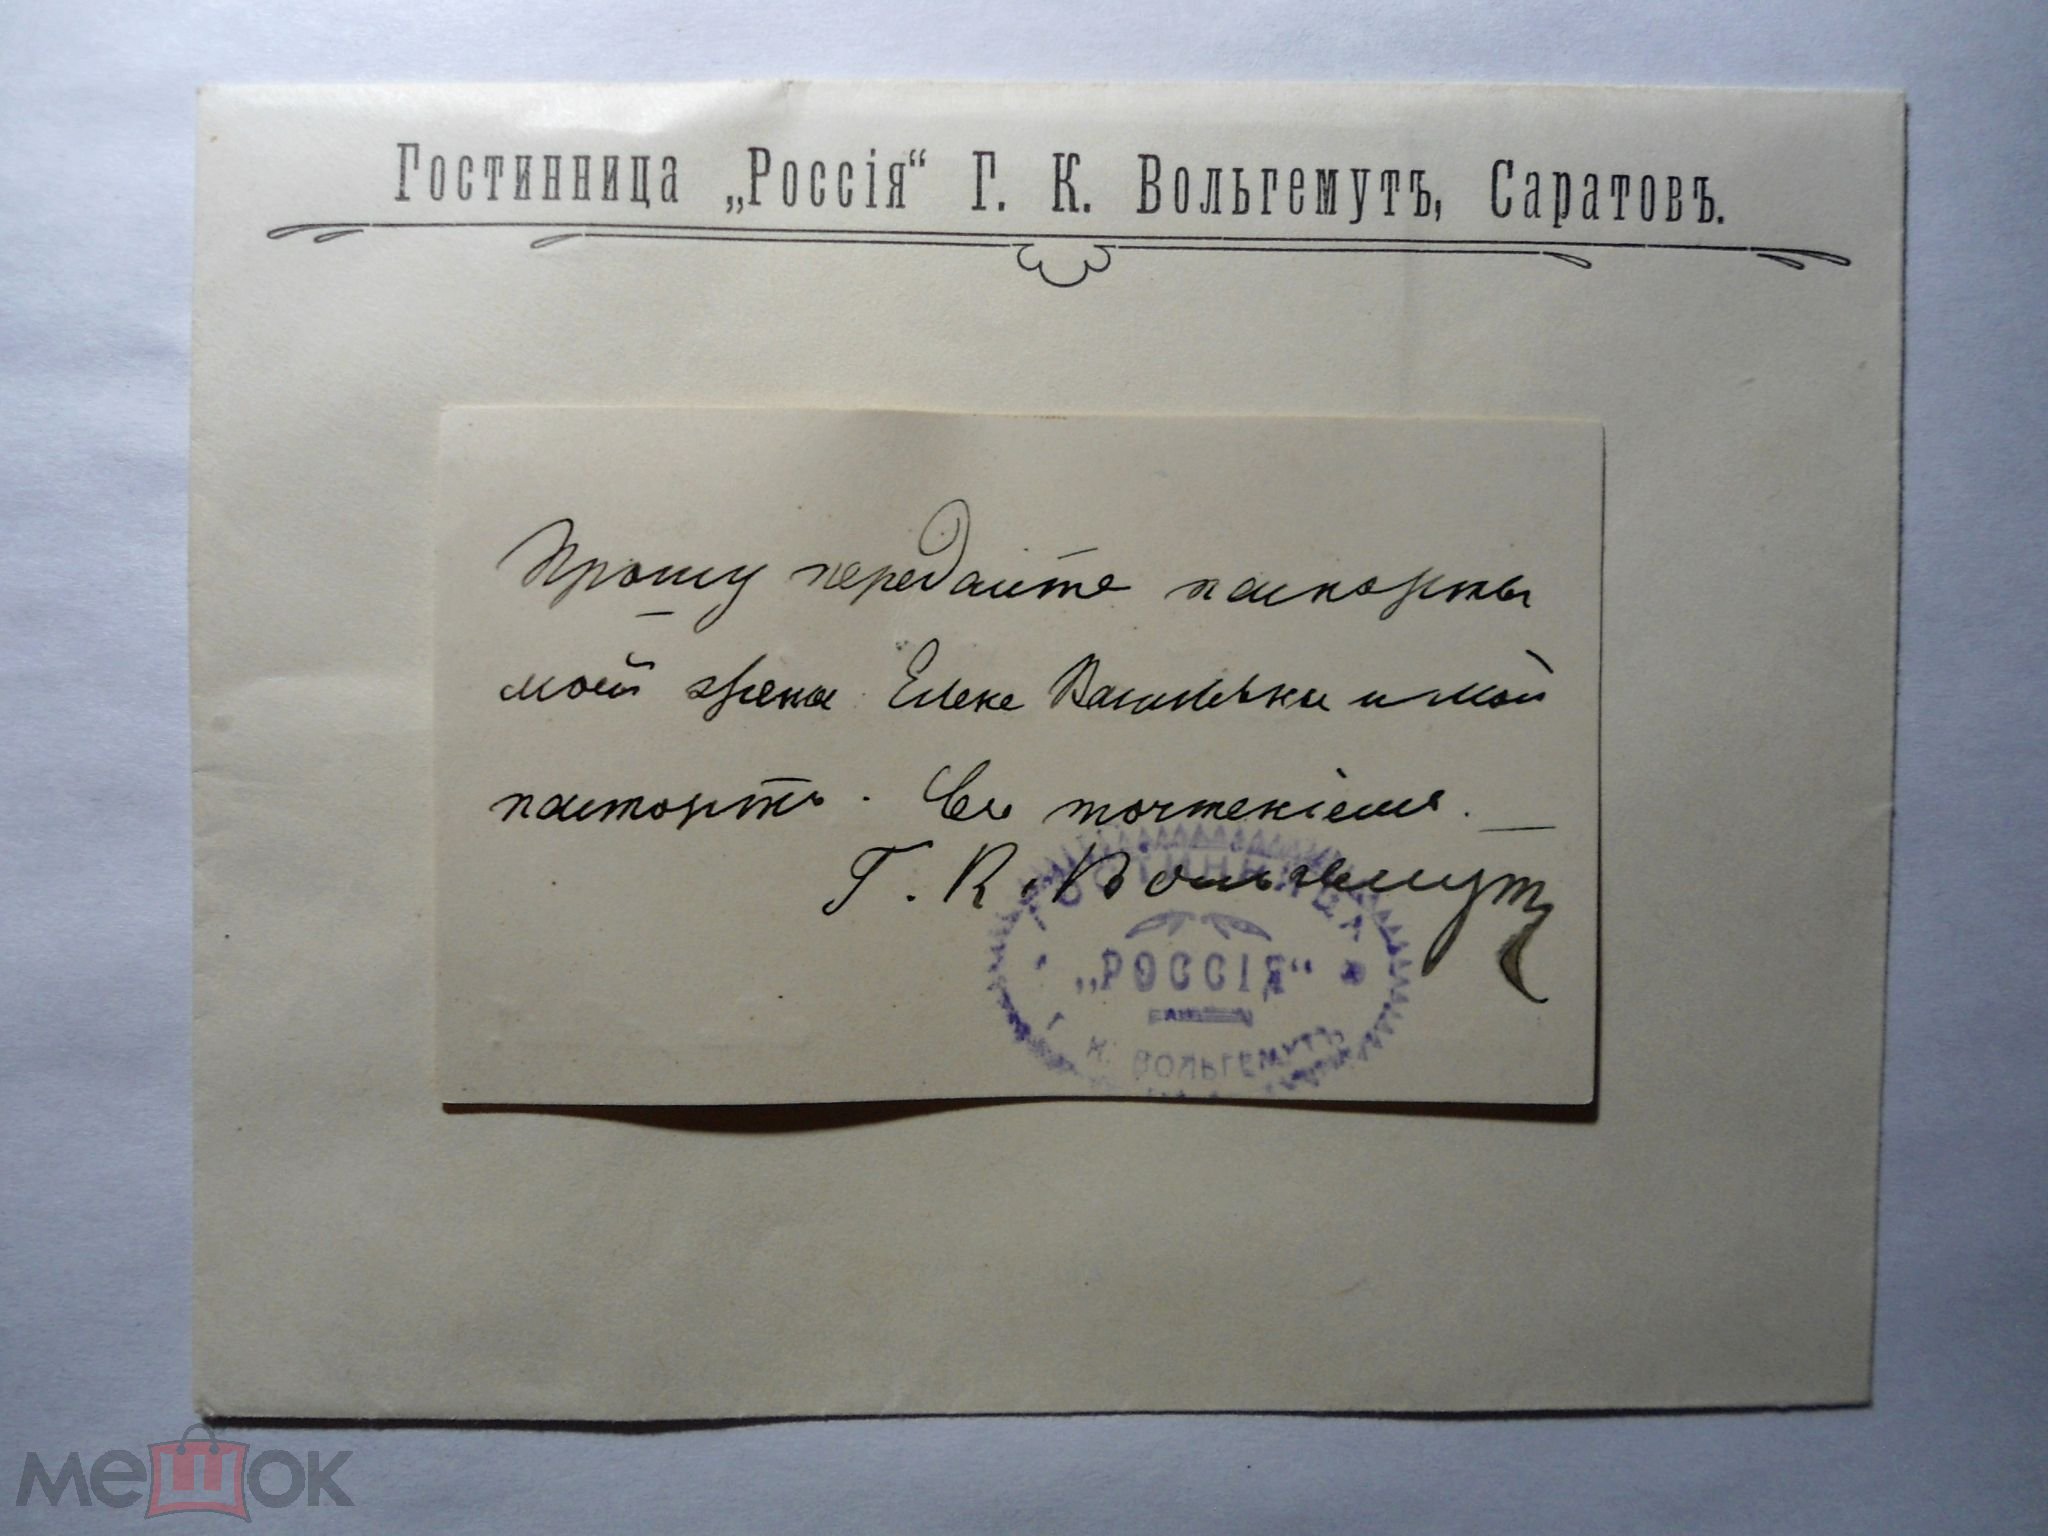 Гостинница „Россія“ Г. К. Вольгемутъ, Саратовъ.
Прошу передайте паспорты
моей жены Елене Васильевны и мой
паспортъ. Съ почтеніемъ.
Г. К. Вольгемутъ
ГОСТИННИЦА
„РОССІЯ“
Г. К. ВОЛЬГЕМУТЪ
мешок